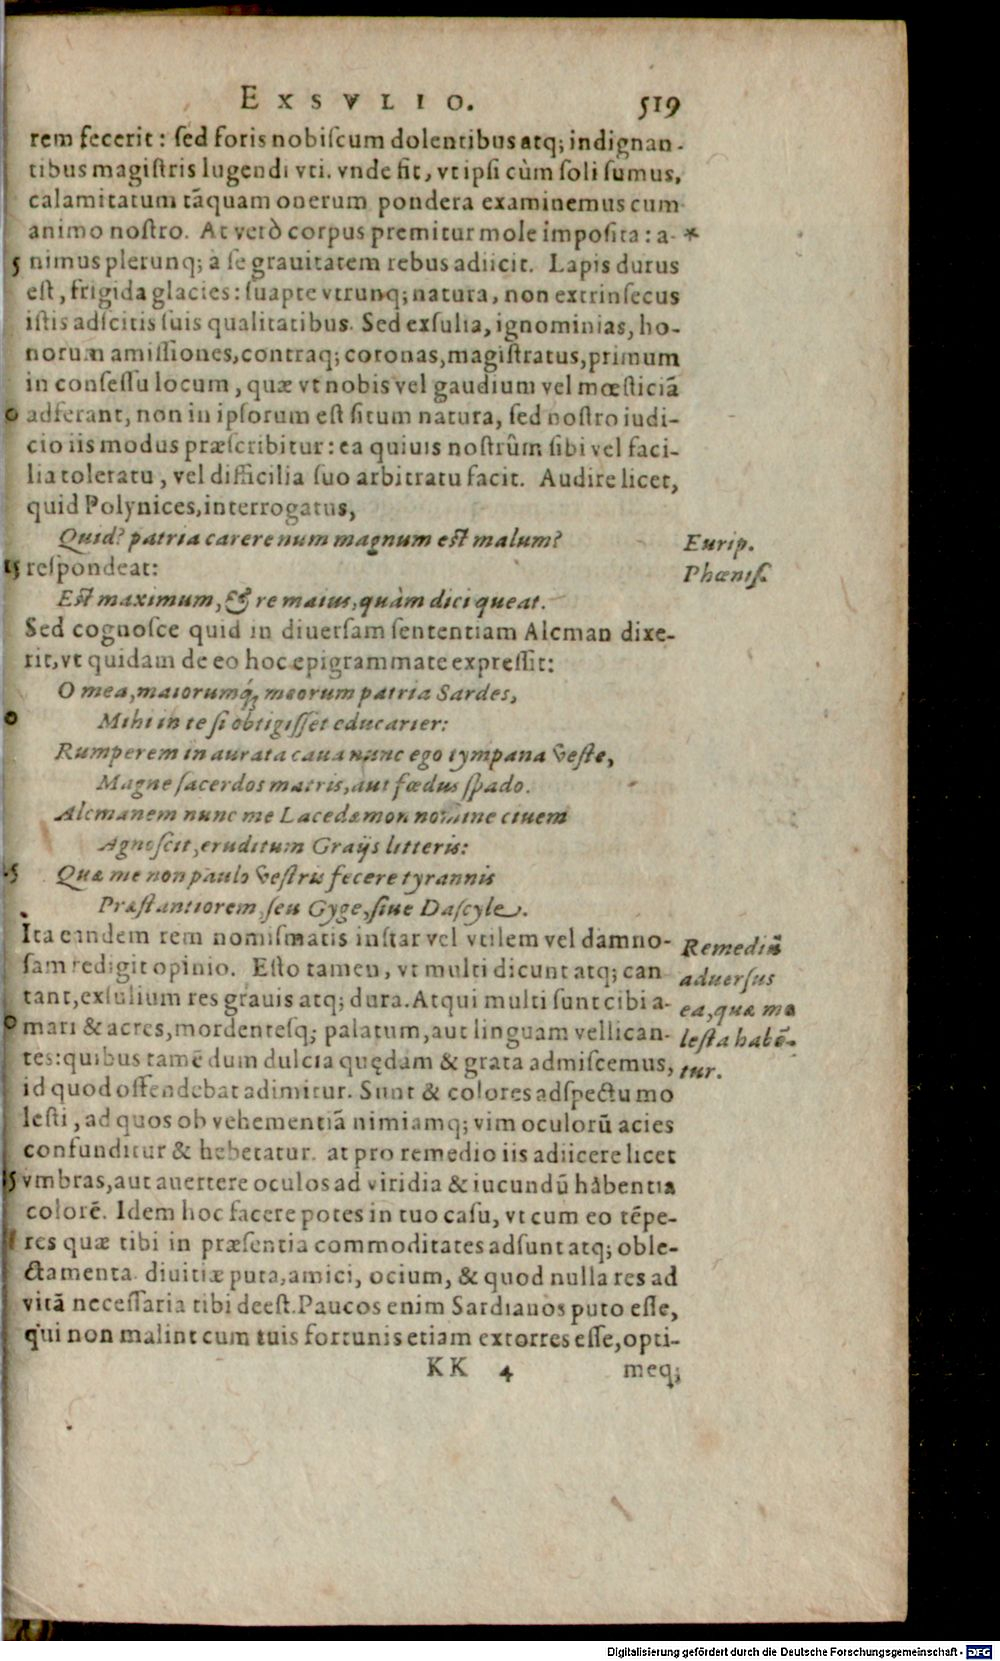 EXSVLIO. 519
rem fecerit: ſed foris nobiſcum dolentibus atq; indignan-
tibus magiſtris lugendi vti. vnde fit, vt ipſi cùm ſoli ſumus,
calamitatum tāquam onerum pondera examinemus cum
animo noſtro. At verò corpus premitur mole impoſita: a- *
5 nimus plerunq; a ſe grauitatem rebus adiicit. Lapis durus
eſt, frigida glacies: ſuapte vtrunq; natura, non extrinſecus
iſtis adſcitis ſuis qualitatibus. Sed exſulia, ignominias, ho-
norum amiſſiones, contraq; coronas, magiſtratus, primum
in conſeſſu locum, quæ vt nobis vel gaudium vel mœſticiā
0 adferant, non in ipſorum eſt ſitum natura, ſed noſtro iudi-
cio iis modus præſcribitur: ea quiuis noſtrûm ſibi vel faci-
lia toleratu, vel difficilia ſuo arbitratu facit. Audire licet,
quid Polynices, interrogatus,
Quid? patria carere num magnum eſt malum?
Eurip.
15 reſpondeat:
Phœniſ.
Eſt maximum, & re maius, quàm dici queat.
Sed cognoſce quid in diuerſam ſententiam Alcman dixe-
rit, vt quidam de eo hoc epigrammate expreſſit:
O mea, maiorumq́; meorum patria Sardes,
0 Mihi in te ſi obtigiſſet educarier:
Rumperem in aurata caua nunc ego tympana veſte,
Magne ſacerdos matris, aut fœdus ſpado.
Alcmanem nunc me Lacedæmon nomine ciuem
Agnoſcit, eruditum Graijs litteris:
5 Quæ me non paulo veſtris fecere tyrannis
Præſtantiorem, ſeu Gyge, ſiue Daſcyle.
Ita eandem rem nomiſmatis inſtar vel vtilem vel damno-
ſam redigit opinio. Eſto tamen, vt multi dicunt atq; can
tant, exſulium res grauis atq; dura. Atqui multi ſunt cibi a-
0 mari & acres, mordenteſq; palatum, aut linguam vellican-
tes: quibus tamē dum dulcia quędam & grata admiſcemus,
id quod offendebat adimitur. Sunt & colores adſpectu mo
leſti, ad quos ob vehementiā nimiamq; vim oculorū acies
confunditur & hebetatur. at pro remedio iis adiicere licet
5 vmbras, aut auertere oculos ad viridia & iucundū habentia
colorē. Idem hoc facere potes in tuo caſu, vt cum eo tēpe-
res quæ tibi in præſentia commoditates adſunt atq; oble-
ctamenta. diuitiæ puta, amici, ocium, & quod nulla res ad
vitā neceſſaria tibi deeſt. Paucos enim Sardianos puto eſſe,
qui non malint cum tuis fortunis etiam extorres eſſe, opti-
KK 4 meq;
Remediū
aduerſus
ea, quæ mo
leſta habē-
tur.
Digitalisierung gefördert durch die Deutsche Forschungsgemeinschaft - DFG